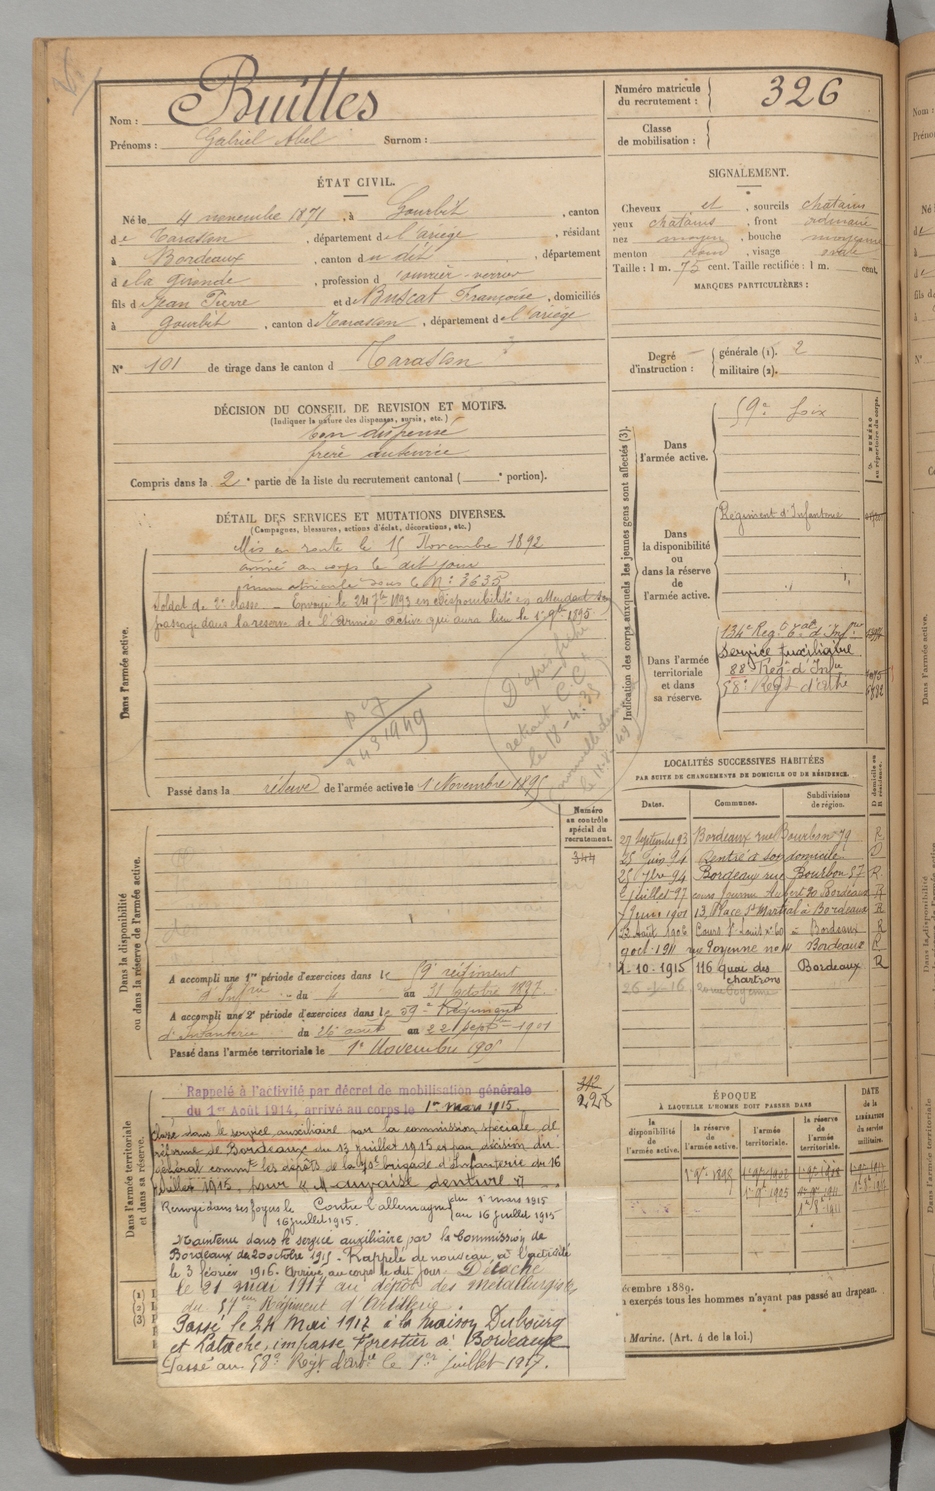 Nom : Buittes
Prénoms : Gabriel Abel Surnom :
ÉTAT CIVIL.
Né le 4 novembre 1871, à Gourbit, canton
de Tarascon, département de l'ariège, résidant
à Bordeaux, canton du dit, département
de la Gironde, profession d'ouvrier-verrier
fils de Jean Pierre et de Buscat Françoise, domiciliés
à Gourbit, canton de Tarascon, département de l'ariège
N° 101 de tirage dans le canton d Tarascon
DÉCISION DU CONSEIL DE REVISION ET MOTIFS.
(Indiquer la nature des dispenses, sursis, etc.)
bon dispensé
frère
Compris dans la 2e partie de la liste du recrutement cantonal ( e portion).
DÉTAIL DES SERVICES ET MUTATIONS DIVERSES.
(Campagnes, blessures, actions d'éclat, décorations, etc.)
Dans l'armée active.
Mis en route le 15 Novembre 1892
arrivé au corps le dit jour
immatriculé sous le N° 3635
Soldat de 2e classe — Envoyé le 24 7bre 1893 en Disponibilité en attendant son
passage dans la réserve de l'Armée active qui aura lieu le 1er 9bre 1895
24 3 1949
D'après fiche
retrait C.C.
le 18-4-35
Passé dans la réserve de l'armée active le 1 Novembre 1895
Numéro
au contrôle
spécial du
recrutement.
344
Dans la disponibilité
ou dans la réserve de l'armée active.
A accompli une 1re période d'exercices dans le régiment
d'Infrie du 4 au 31 octobre 1897
A accompli une 2e période d'exercices dans le 59e Régiment
d'Infanterie du 26 août au 22 septbre 1901
Passé dans l'armée territoriale le 1er Novembre 1905
Dans l'armée territoriale
et dans sa réserve.
Rappelé à l'activité par décret de mobilisation générale
du 1er Août 1914, arrivé au corps le 1er mars 1915
312
228
Classé dans le service auxiliaire par la commission spéciale de
réforme de Bordeaux du 13 juillet 1915 et par décision du
général commt les dépôts de la brigade d'Infanterie du 16
juillet 1915, pour "Mauvaise denture"
Renvoyé dans ses foyers le 16 juillet 1915.
Contre l'allemagne du 1er mars 1915 au 16 juillet 1915
Maintenu dans le service auxiliaire par la Commission de
Bordeaux du 20 octobre 1915 - Rappelé de nouveau à l'activité
le 3 février 1916. Arrivé au corps le dit jour. Détaché
le 21 mai 1917 au dépôt des métallurgistes
du 57eme Régiment d'Artillerie.
Passé le 24 Mai 1917 à la maison Dubourg
et Patache, impasse Forestier à Bordeaux
Passé au 58e Regt d'artie le 1er juillet 1917.
(1) I
(2)
(3)
Numéro matricule
du recrutement : 326
Classe
de mobilisation :
SIGNALEMENT.
Cheveux et, sourcils châtains
yeux châtains, front ordinaire
nez moyen, bouche moyenne
menton rond, visage ovale
Taille : 1 m. 75 cent. Taille rectifiée : 1 m. cent.
MARQUES PARTICULIÈRES :
Degré
d'instruction :
générale (1). 2
militaire (2).
Indication des corps auxquels les jeunes gens sont affectés (3).
NUMÉRO
au répertoire du corps.
Dans
l'armée active.
59e Foix
Dans
la disponibilité
ou
dans la réserve
de
l'armée active.
Régiment d'Infanterie
Dans l'armée
territoriale
et dans
sa réserve.
134e Reg. d'Infrie
Service Auxiliaire
88e Régt d'Infie
58e Regt d'Artie
LOCALITÉS SUCCESSIVES HABITÉES
PAR SUITE DE CHANGEMENTS DE DOMICILE OU DE RÉSIDENCE.
Dates. Communes. Subdivisions
de région. D domicile ou
R résidence.
27 Septembre 93 Bordeaux rue Bourbon 79 R
25 Juin 94 Rentré à son domicile D
25 7bre 94 Bordeaux rue Bourbon 57 R
2 juillet 97 cours Journu Aubert 20 Bordeaux R
7 Juin 1901 13, Place St Martial à Bordeaux R
23 Août 1906 Cours St Louis n° 60 - Bordeaux R
9 oct. 1911 rue Poyenne no 14 Bordeaux R
2-10-1915 116 quai des chartrons Bordeaux R
ÉPOQUE
À LAQUELLE L'HOMME DOIT PASSER DANS
la
disponibilité
de
l'armée active.
la réserve
de
l'armée active.
l'armée
territoriale.
la réserve
de
l'armée
territoriale.
DATE
de la
LIBÉRATION
du service
militaire.
1er 9bre 1895
1er 9bre 1905
écembre 1889.
exercés tous les hommes n'ayant pas passé au drapeau.
Marine. (Art. 4 de la loi.)